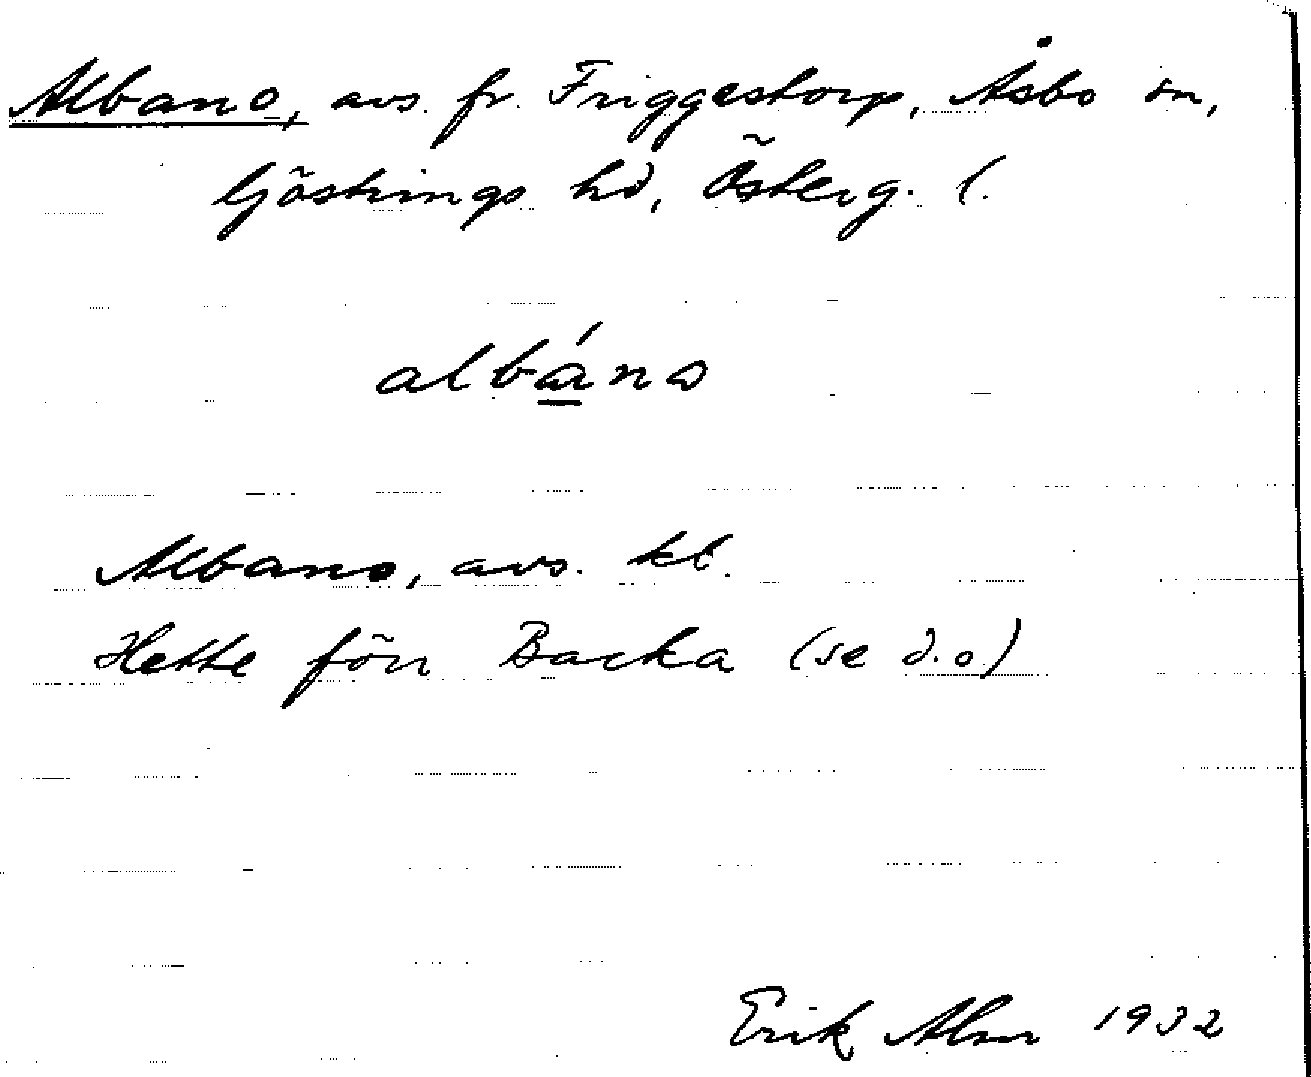 Albano, avs. fr. Friggestorp, Åsbo sn,
Göstrings hd, Österg. l.
albáno
Albano, avs. kl.
Hette förr Backa (se d.o)
Erik Alm 1932